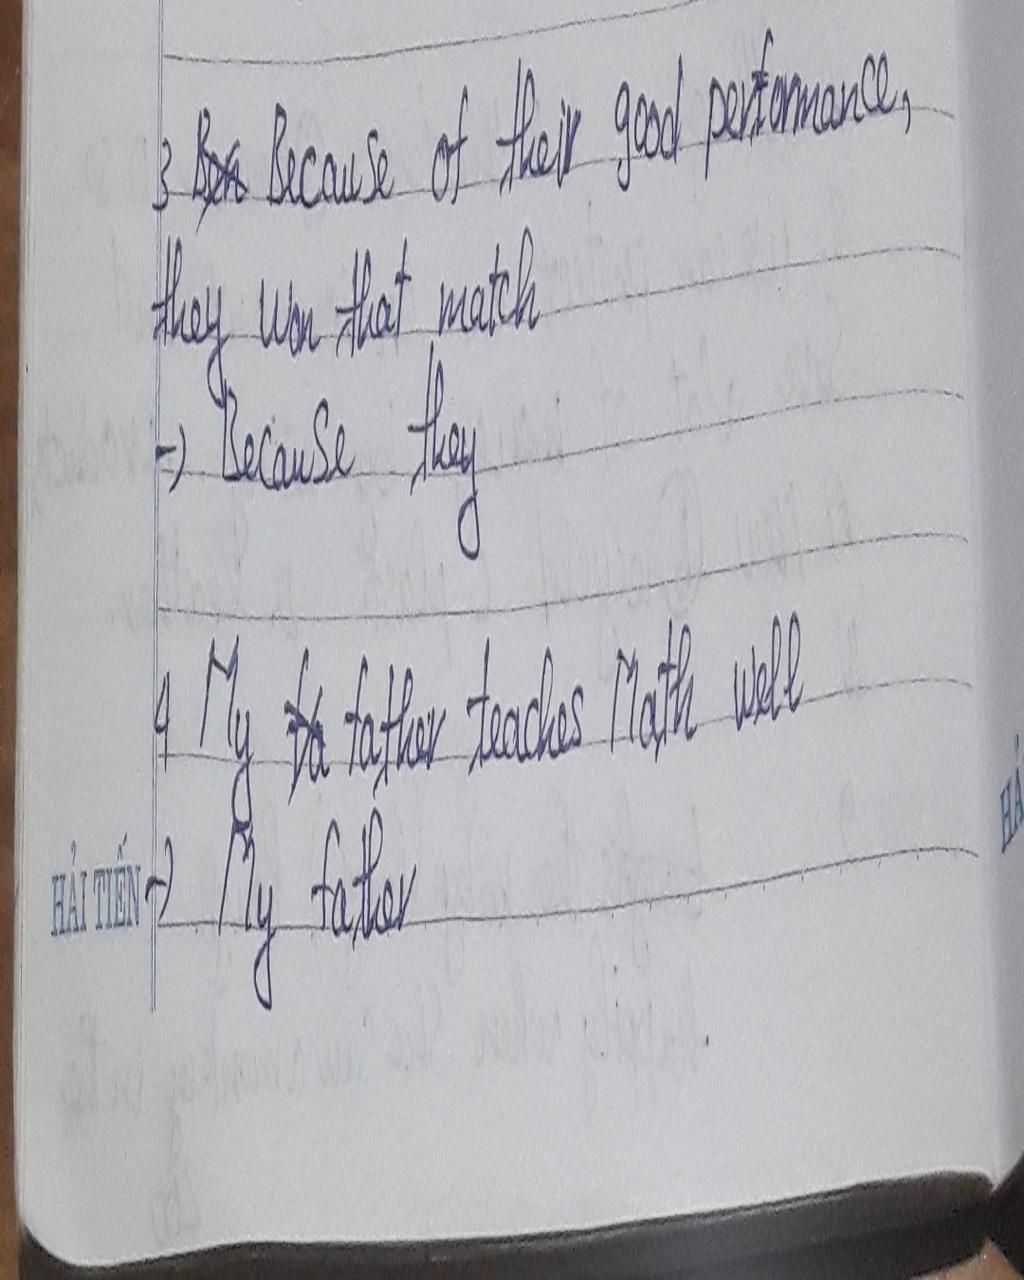 3 Because of their good performance,
they won that match
→ Because they
4 My father teaches Math well
HẢI TIẾN
→ My father
HẢ